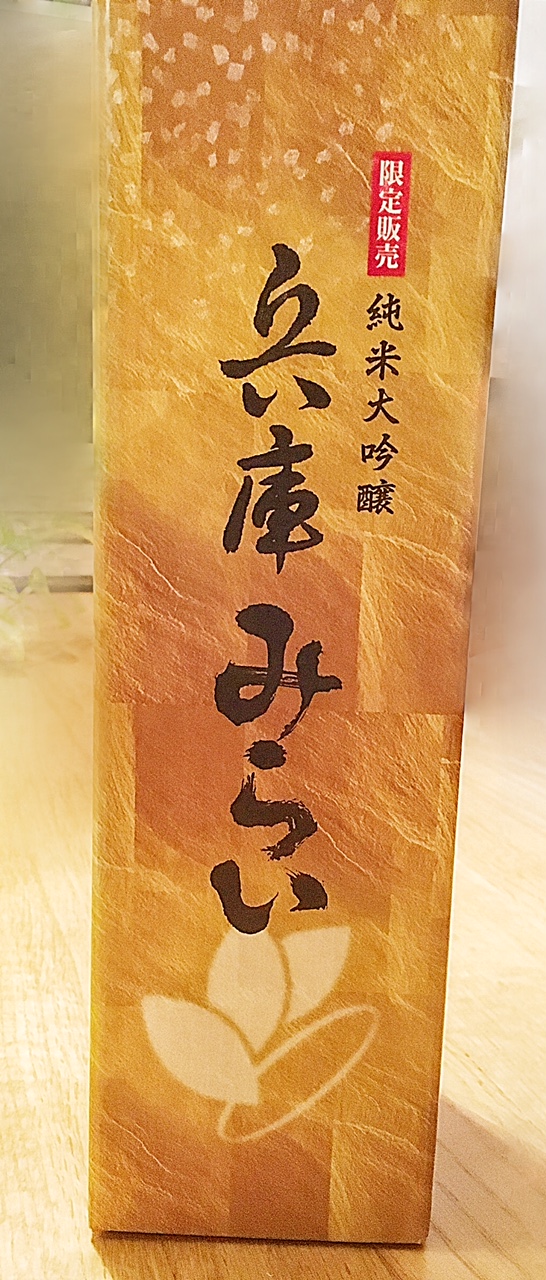 限定販売
純米大吟醸
兵庫みらい